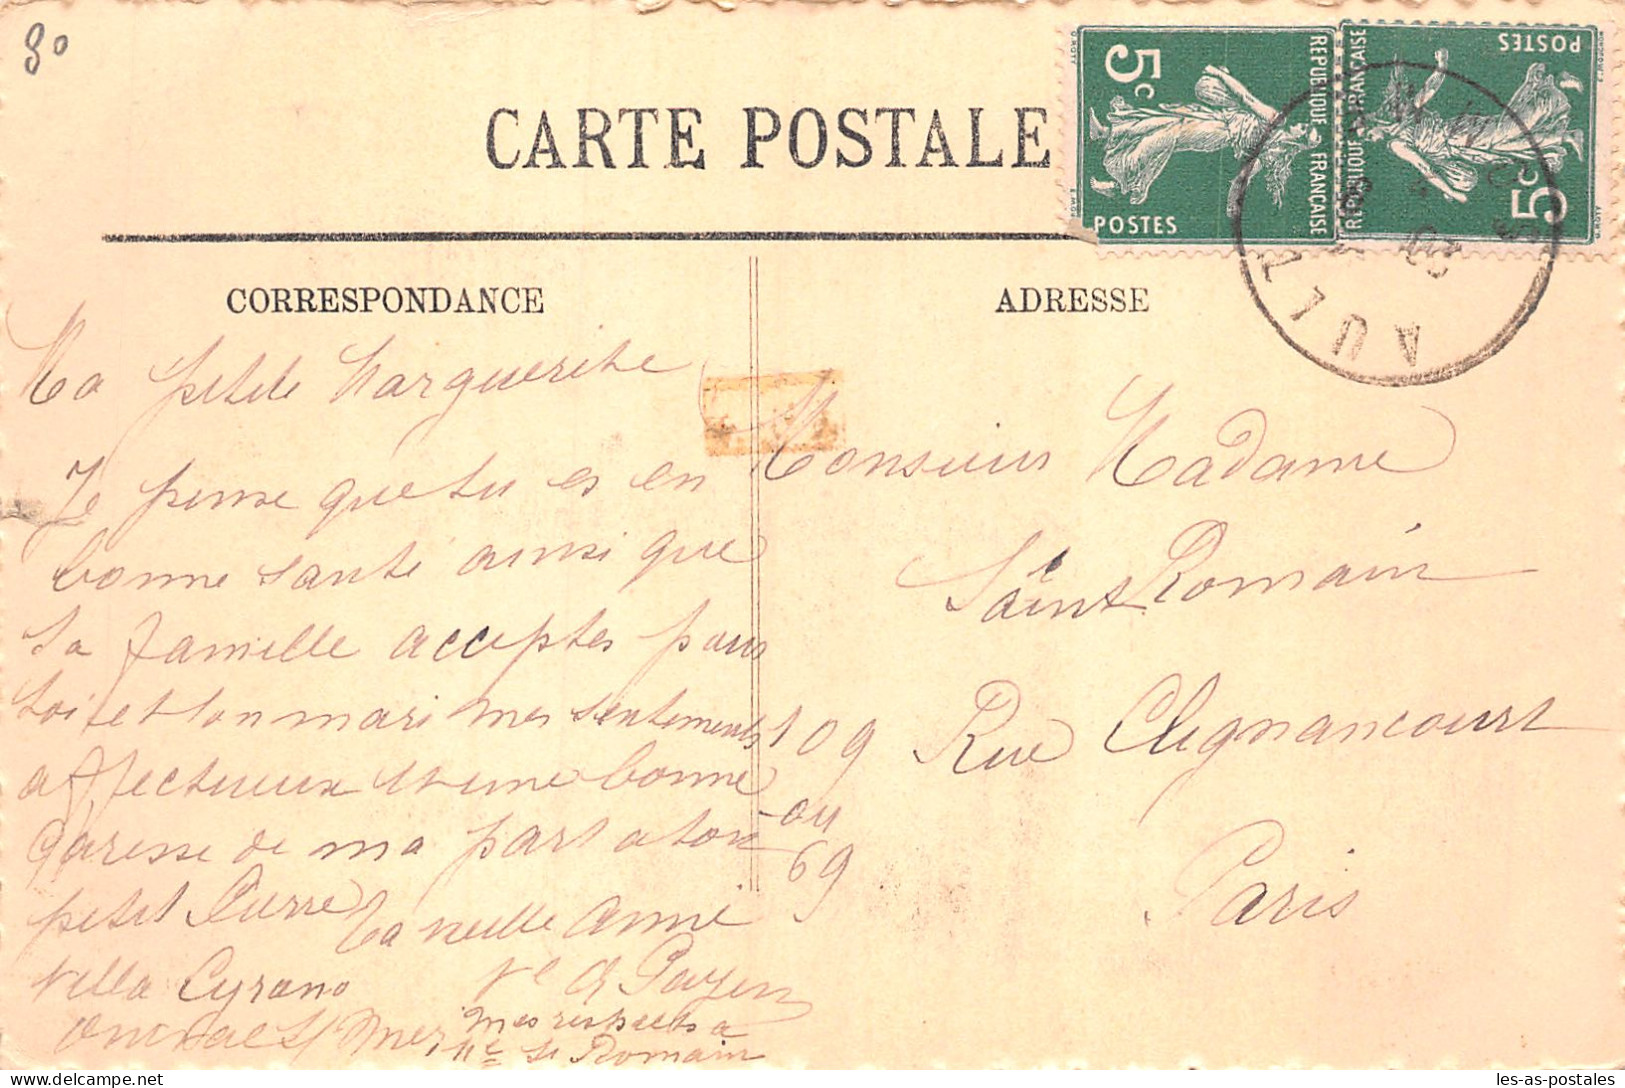 80
CARTE POSTALE
REPUBLIQUE FRANÇAISE
5c
POSTES
REPUBLIQUE FRANÇAISE
5c
POSTES
AULT
CORRESPONDANCE
Ma petite Marguerite
Je pense que tu es en
bonne santé ainsi que
ta famille acceptes pour
toi et ton mari mes sentements
affectueux et une bonne
Caresse de ma part a ton
petit Pierre ta vieille amie
Vve de Payen
Villa Cyrano
Onival s/ Mer
mes respects a
Mr St Romain
ADRESSE
Monsieur Madame
Saint Romain
109 Rue Clignancourt
ou
69
Paris
les-as-postales